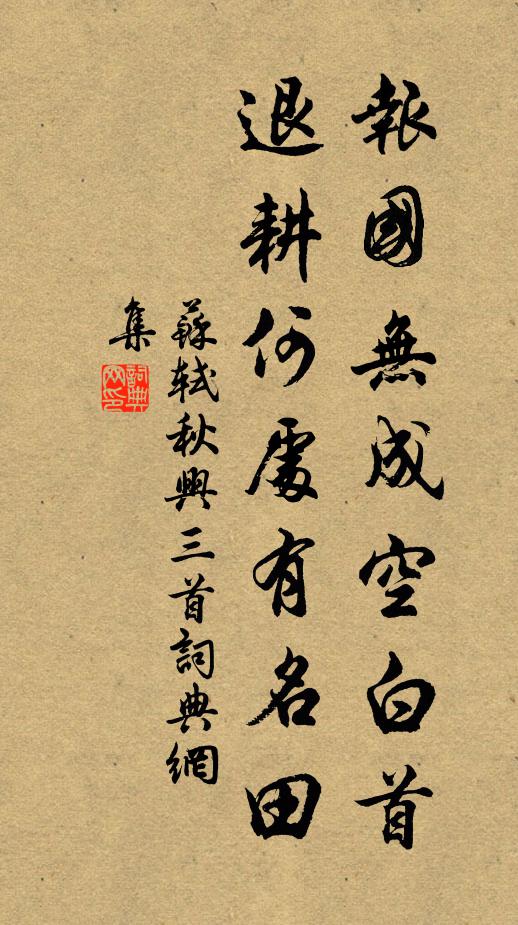 報國無成空白首
退耕何處有名田
蘇軾秋興三首詞典網
集
詞典網印